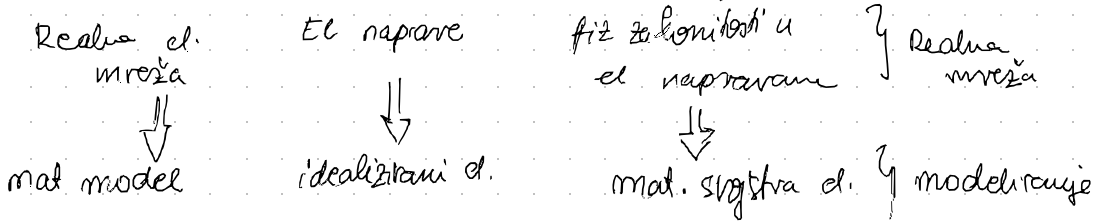 Realna el.
mreža
El naprave
fiz zakonitosti u
el napravama
Realna
mreža
mat model
idealizirani el.
mat. svojstva el.
modeliranje